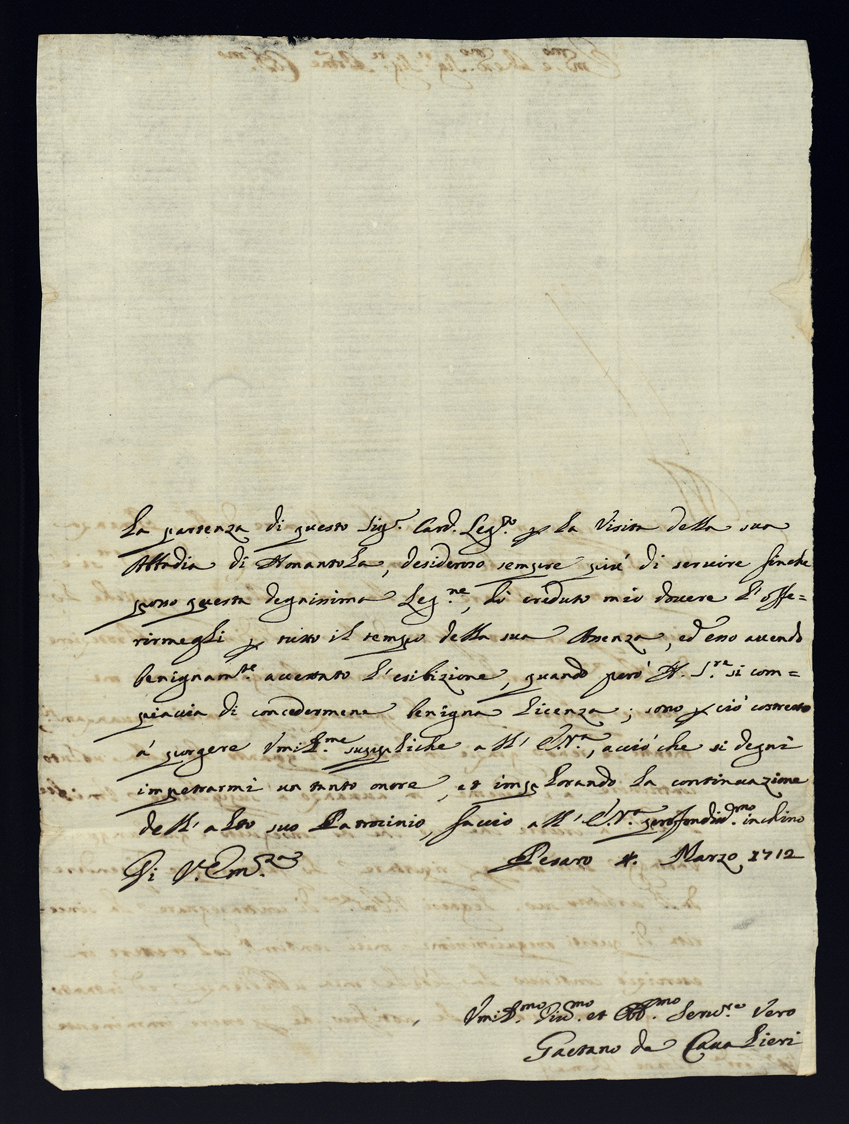 La partenza di questo Sig.r Card. Leg.to p la Visita della sua
Abbadia di Nonantola, desideroso sempre più di servire finche
posso questa degnissima Leg.ne, hò creduto mio dovere l'offe=
rirmegli p tutto il tempo della sua Assenza, ed esso avendo
benignam.te accettato l'esibizione, quando però N. S.re si com=
piaccia di concedermene benigna licenza; sono p ciò costretto
à porgere Vmil.me suppliche all' E.V.ra, acciò che si degni
impetrarmi un tanto onore, et implorando la continuazione
dell' alto suo Patrocinio, faccio all' E.V.ra profondiss.mo inchino
Di V. Em.za
Pesaro 4. Marzo 1712
Vmil.mo Div.mo et Obl.mo Serv.re Vero
Gaetano de Cavalieri